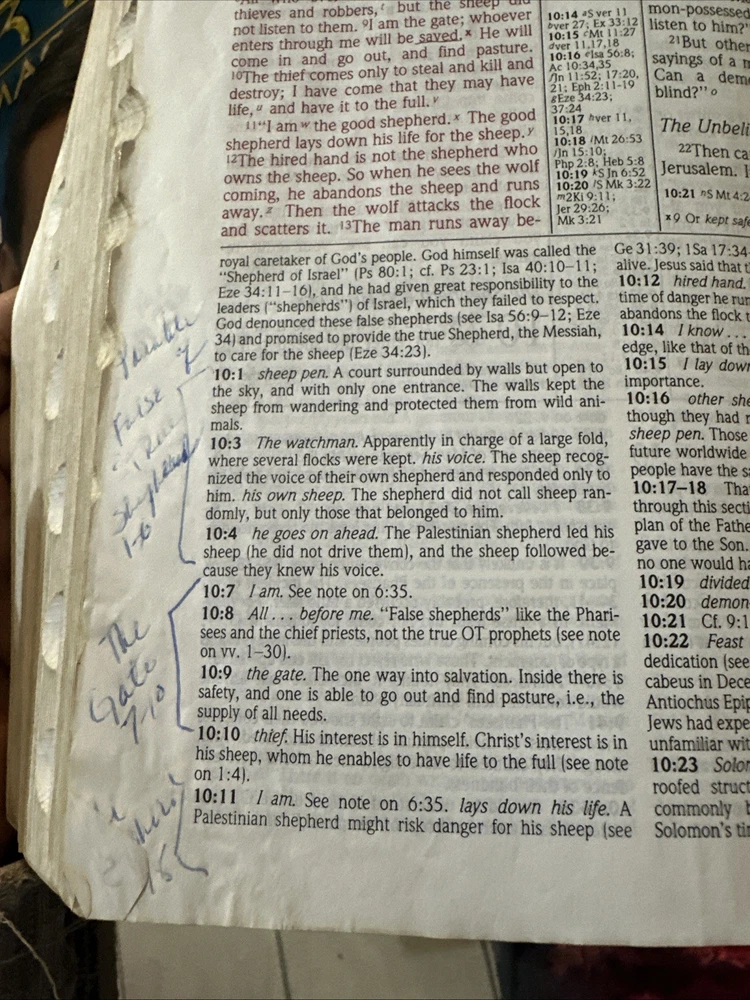 thieves and robbers, but the sheep did
not listen to them. ⁹I am the gate; whoever
enters through me will be saved.ˣ He will
come in and go out, and find pasture.
¹⁰The thief comes only to steal and kill and
destroy; I have come that they may have
life,ᵘ and have it to the full.ᵛ
¹¹“I amʷ the good shepherd.ˣ The good
shepherd lays down his life for the sheep.ʸ
¹²The hired hand is not the shepherd who
owns the sheep. So when he sees the wolf
coming, he abandons the sheep and runs
away.ᶻ Then the wolf attacks the flock
and scatters it. ¹³The man runs away be-
10:14 ᵃS ver 11
ᵇver 27; Ex 33:12
10:15 ᶜMt 11:27
ᵈver 11,17,18
10:16 ᵉIsa 56:8;
Ac 10:34,35
ᶠJn 11:52; 17:20,
21; Eph 2:11-19
ᵍEze 34:23;
37:24
10:17 ʰver 11,
15,18
10:18 ⁱMt 26:53
ʲJn 15:10;
Php 2:8; Heb 5:8
10:19 ᵏS Jn 6:52
10:20 ˡS Mk 3:22
ᵐ2Ki 9:11;
Jer 29:26;
Mk 3:21
mon-possessed
listen to him?”
²¹But other
sayings of a m
Can a dem
blind?”ᵒ
The Unbeli
²²Then ca
Jerusalem. I
10:21 ⁿS Mt 4:2
ˣ9 Or kept safe
royal caretaker of God’s people. God himself was called the
“Shepherd of Israel” (Ps 80:1; cf. Ps 23:1; Isa 40:10–11;
Eze 34:11–16), and he had given great responsibility to the
leaders (“shepherds”) of Israel, which they failed to respect.
God denounced these false shepherds (see Isa 56:9–12; Eze
34) and promised to provide the true Shepherd, the Messiah,
to care for the sheep (Eze 34:23).
10:1 sheep pen. A court surrounded by walls but open to
the sky, and with only one entrance. The walls kept the
sheep from wandering and protected them from wild ani-
mals.
10:3 The watchman. Apparently in charge of a large fold,
where several flocks were kept. his voice. The sheep recog-
nized the voice of their own shepherd and responded only to
him. his own sheep. The shepherd did not call sheep ran-
domly, but only those that belonged to him.
10:4 he goes on ahead. The Palestinian shepherd led his
sheep (he did not drive them), and the sheep followed be-
cause they knew his voice.
10:7 I am. See note on 6:35.
10:8 All . . . before me. “False shepherds” like the Phari-
sees and the chief priests, not the true OT prophets (see note
on vv. 1–30).
10:9 the gate. The one way into salvation. Inside there is
safety, and one is able to go out and find pasture, i.e., the
supply of all needs.
10:10 thief. His interest is in himself. Christ’s interest is in
his sheep, whom he enables to have life to the full (see note
on 1:4).
10:11 I am. See note on 6:35. lays down his life. A
Palestinian shepherd might risk danger for his sheep (see
Ge 31:39; 1Sa 17:34
alive. Jesus said that t
10:12 hired hand.
time of danger he run
abandons the flock t
10:14 I know . . .
edge, like that of th
10:15 I lay down
importance.
10:16 other she
though they had n
sheep pen. Those
future worldwide
people have the sa
10:17–18 Tha
through this secti
plan of the Fathe
gave to the Son.
no one would ha
10:19 divided
10:20 demon
10:21 Cf. 9:1
10:22 Feast
dedication (see
cabeus in Dece
Antiochus Epip
Jews had expe
unfamiliar wit
10:23 Solon
roofed struct
commonly b
Solomon’s tin
Parable
of
False
Shepherd
1-6
The
Gate
7-10